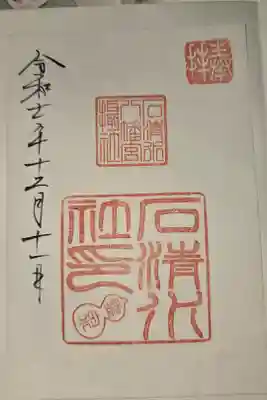 奉拝
石清水
八幡宮
摂社
石清水
社印
令和七年十二月十一日